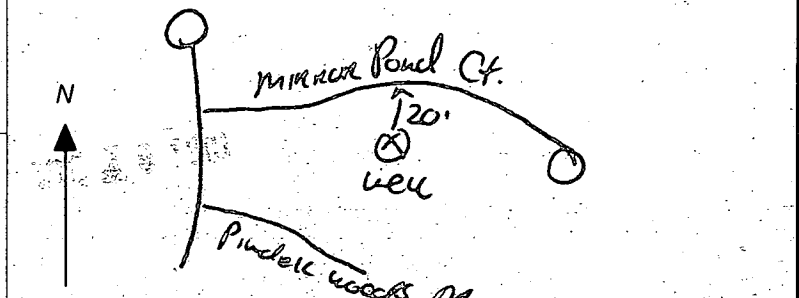 N
Mirror Pond Ct.
120'
well
Pindell Woods